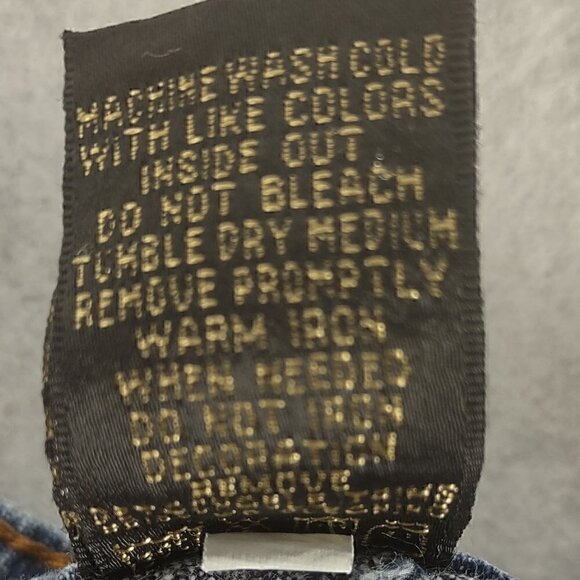 MACHINE WASH COLD
WITH LIKE COLORS
INSIDE OUT
DO NOT BLEACH
TUMBLE DRY MEDIUM
REMOVE PROMPTLY
WARM IRON
WHEN NEEDED
DO NOT IRON
DECORATION
REMOVE